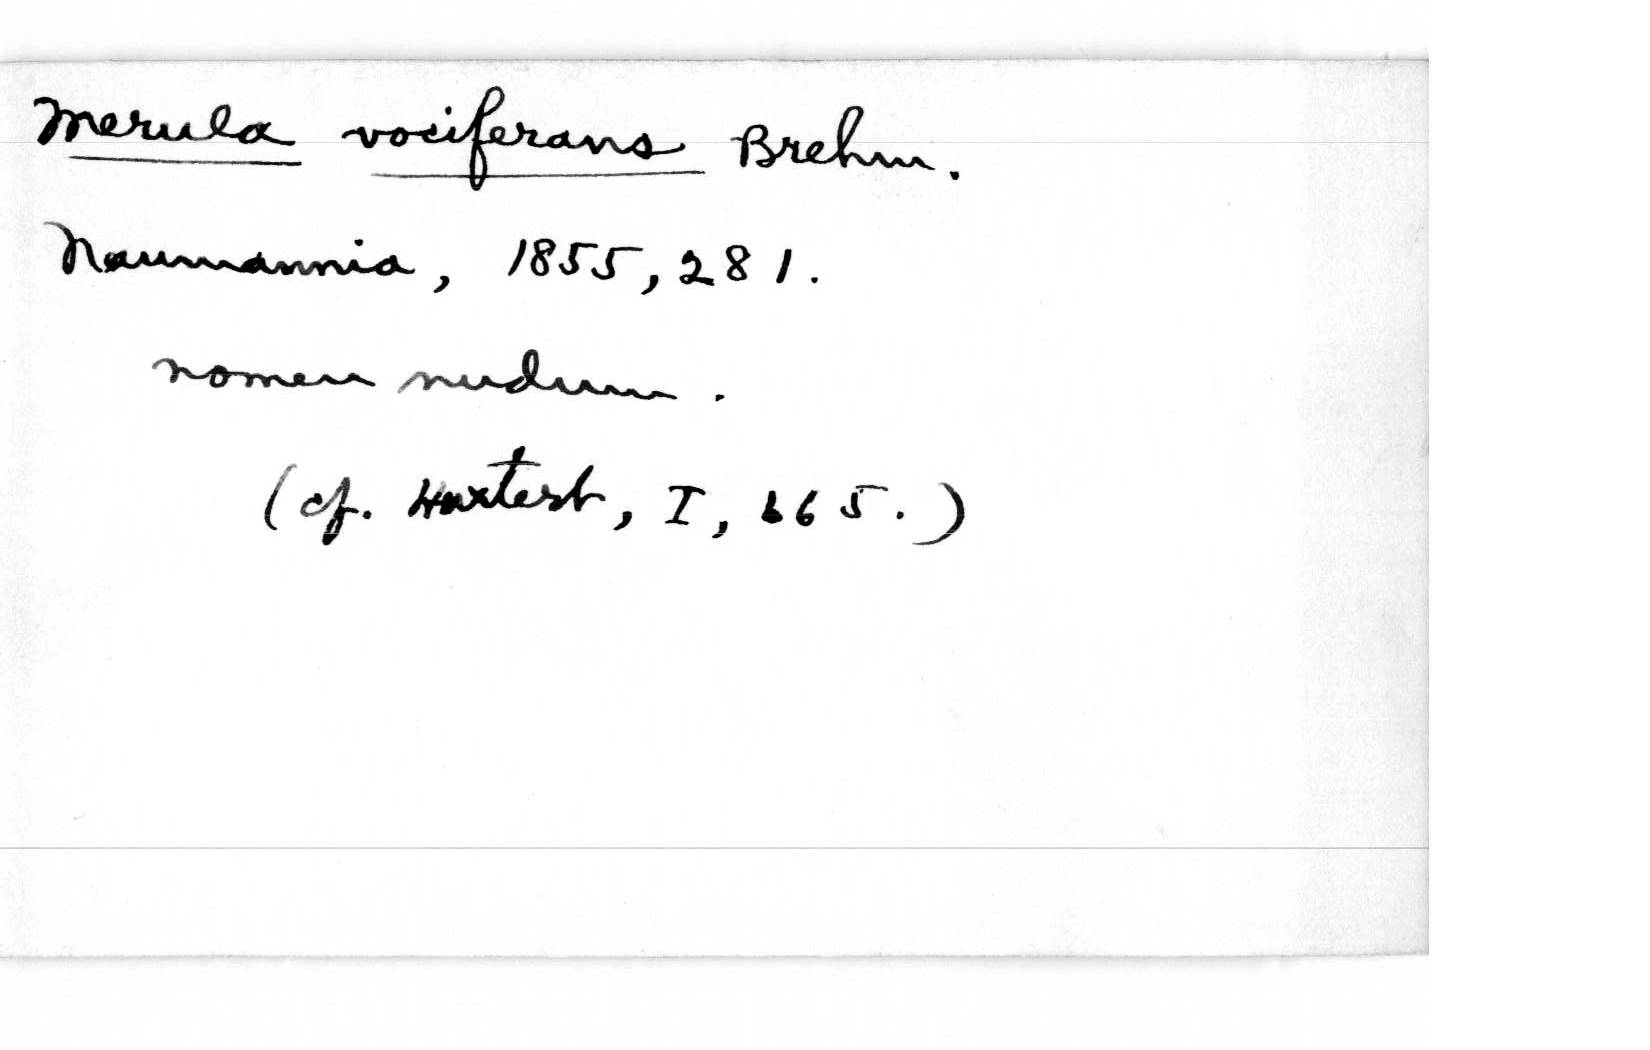 Merula vociferans Brehm.
Naumannia, 1855, 281.
nomen nudum.
(cf. Hartert, I, 665.)